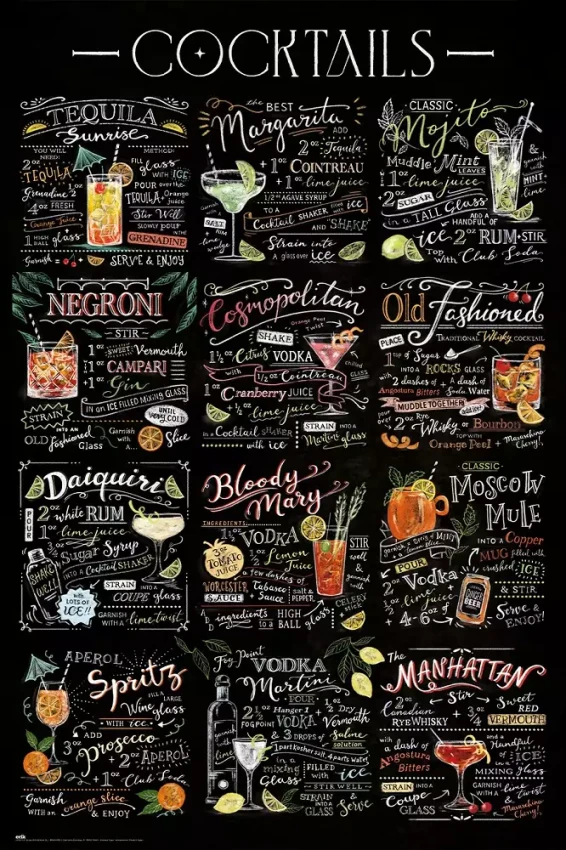 COCKTAILS
TEQUILA
Sunrise
YOU WILL NEED:
2 oz TEQUILA
Grenadine
4 oz FRESH
Orange Juice
1 HIGH BALL glass
Garnish
METHOD:
FILL glass
with ICE
POUR over the
TEQUILA, Orange
Juice
Stir Well
SLOWLY POUR
IN THE
GRENADINE
SERVE & ENJOY
the BEST
Margarita
ADD
2 oz Tequila
+ 1 oz COINTREAU
+ 1 oz lime juice
1/2 oz AGAVE SYRUP
TO a
Cocktail SHAKER with ice
AND SHAKE
SALT
rim
lime
wedge
Strain into
A glass over ice
CLASSIC
Mojito
Muddle Mint LEAVES
1 oz lime juice
2 oz SUGAR
in a TALL Glass
ADD A
HANDFUL OF
ice 2 oz RUM STIR
Top with Club Soda
&
garnish
with
MINT
Lime
NEGRONI
STIR
1 oz SWEET Vermouth
1 oz CAMPARI
1 oz Gin
IN AN ICE FILLED MIXING GLASS
UNTIL
VERY COLD
STRAIN
INTO AN
OLD fashioned
Glass
Garnish
with
A...
Slice
Cosmopolitan
Orange Peel
Twist
SHAKE
1 1/2 oz Citrus VODKA
with 1/2 oz Cointreau
1 oz Cranberry JUICE
+ 1/2 oz lime juice
in a Cocktail SHAKER
with ice
CHILLED
GLASS
STRAIN
INTO a
Martini glass
Old Fashioned
TRADITIONAL Whisky COCKTAIL
PLACE
1 tsp of Sugar
INTO A ROCKS GLASS
with 2 dashes of + A dash of
Angostura Bitters Soda Water
MUDDLE TOGETHER
add ice!
Pour
over
2 oz Rye Whisky or Bourbon
TOP WITH
Orange Peel + Maraschino
Cherry!
Daiquiri
POUR
2 oz white RUM
1 oz lime juice
3/4 oz Sugar Syrup
INTO A Cocktail SHAKER
SHAKE
WELL
with
LOTS OF
ICE!!
STRAIN
INTO A
COUPE glass
GARNISH
WITH A
lime twist
Bloody
Mary
INGREDIENTS:
1 oz VODKA
3 oz
TOMATO
JUICE
1/2 oz Lemon
Juice
a few dashes of
WORCESTER
SAUCE
Tabasco
Sauce
salt &
PEPPER
STIR
well
&
garnish
with
CELERY
stick
ingredients
in a
HIGH
BALL glass
CLASSIC
MOSCOW
MULE
garnish
POUR
2 oz Vodka
1/2 oz lime juice
+ 4-6 oz
GINGER
BEER
INTO A Copper
MUG filled with
crushed ICE
& STIR
Serve &
ENJOY!
APEROL
Spritz
FILL A LARGE
Wine glass
with ICE
ADD
3 oz Prosecco
2 oz APEROL
+ 1 oz Club Soda
Garnish
WITH AN orange slice
& ENJOY
Fog Point
VODKA
Martini
POUR
2 1/4 oz Hanger 1
FOG POINT VODKA
1/2 oz Dry
Vermouth
& 3 DROPS of Saline
solution
1 part kosher salt, 4 parts water
in a
mixing
Glass
FILLED
with ice
STIR WELL
STRAIN
INTO A
GLASS
&
Serve
The
MANHATTAN
Stir
2 oz Canadian
RYE WHISKY
+ 3/4 oz Sweet
RED
VERMOUTH
with a dash of
Angostura
Bitters
and a
Handful
of ICE
IN A
MIXING Glass
STRAIN
INTO a
Coupe
GLASS
GARNISH
with a
lime Twist
& Maraschino
Cherry!
erik